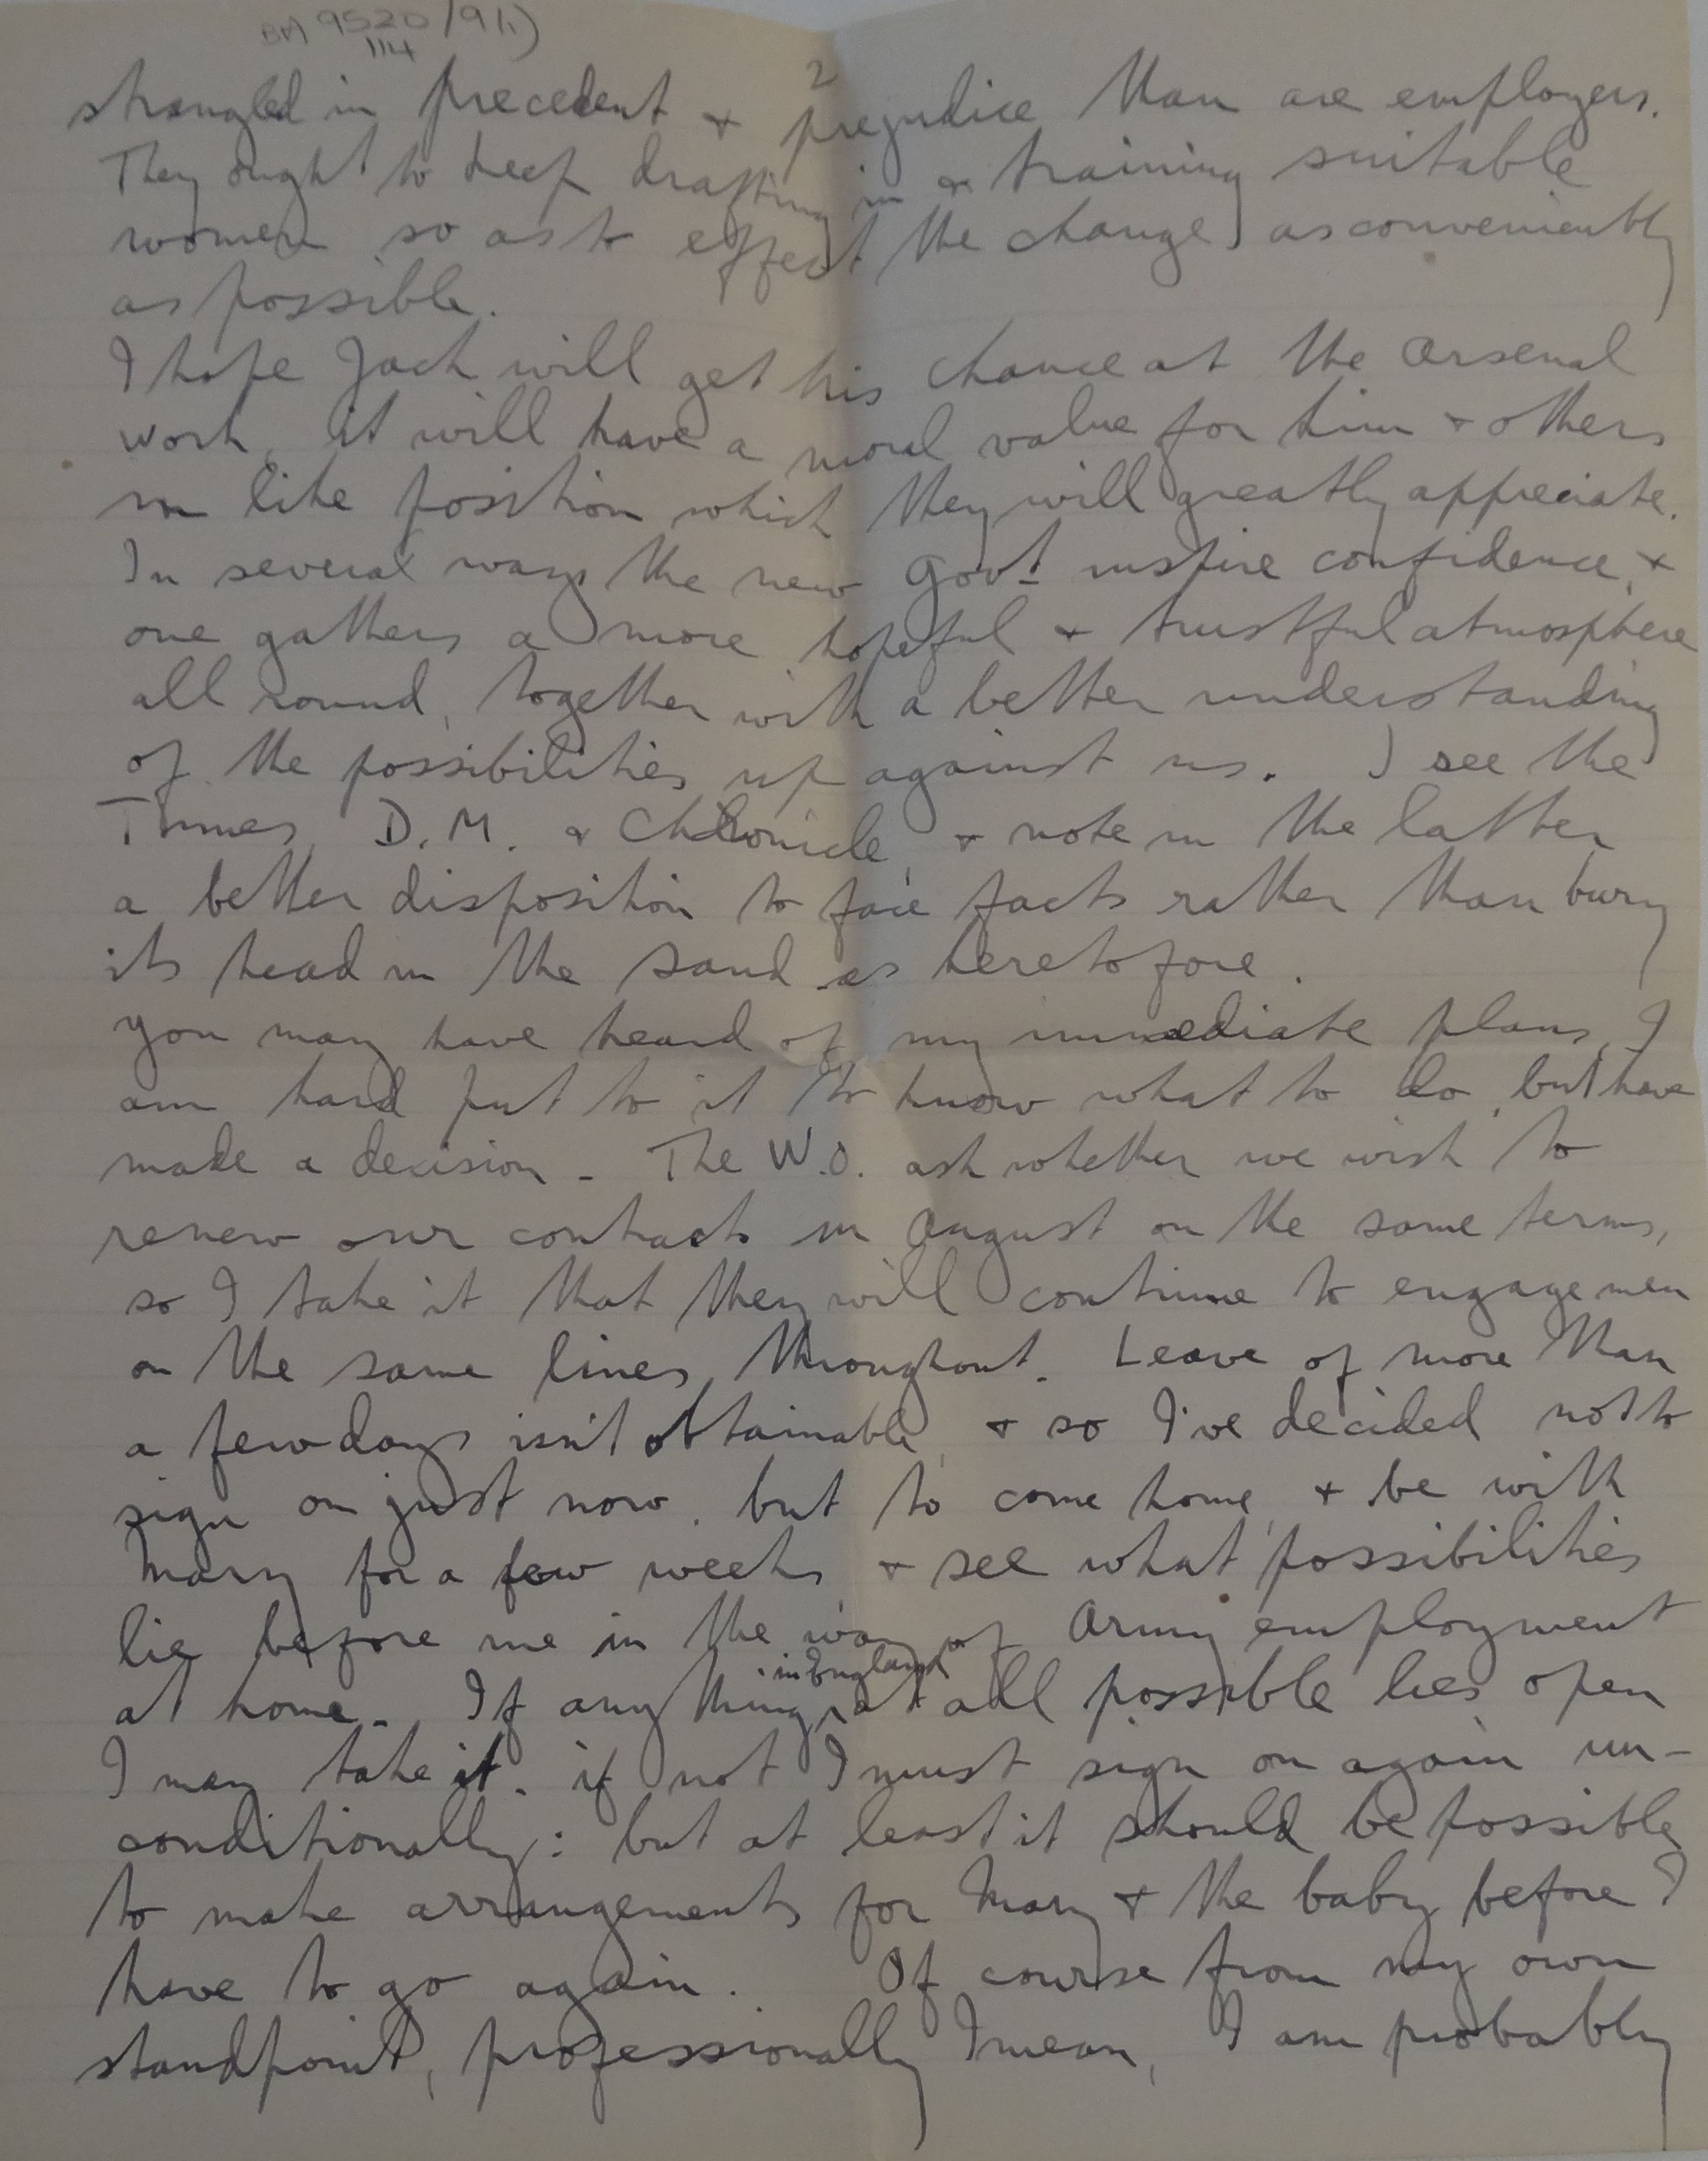 BA 9520/9(1)
114
2
strangled in precedent & prejudice than are employers.
They ought to keep drafting in & training suitable
women so as to effect the change as conveniently
as possible.
I hope Jack will get his chance at the Arsenal
work, it will have a moral value for him & others
in like position which they will greatly appreciate.
In several ways the new Govt inspire confidence, &
one gathers a more hopeful & trustful atmosphere
all round, together with a better understanding
of the possibilities up against us. I see the
Times, D.M. & Chronicle, & note in the latter
a better disposition to face facts rather than bury
its head in the sand as heretofore.
You may have heard of my immediate plans, I
am hard put to it to know what to do, but have
made a decision - The W.O. ask whether we wish to
renew our contracts in August on the same terms,
so I take it that they will continue to engage men
on the same lines throughout. Leave of more than
a few days isn't obtainable, & so I've decided not to
sign on just now, but to come home, & be with
Mary for a few weeks & see what possibilities
lie before me in the way of Army employment
at home. If anything in England at all possible lies open
I may take it. if not I must sign on again un-
conditionally: but at least it should be possible
to make arrangements for Mary & the baby before I
have to go again. Of course from my own
standpoint, professionally I mean, I am probably